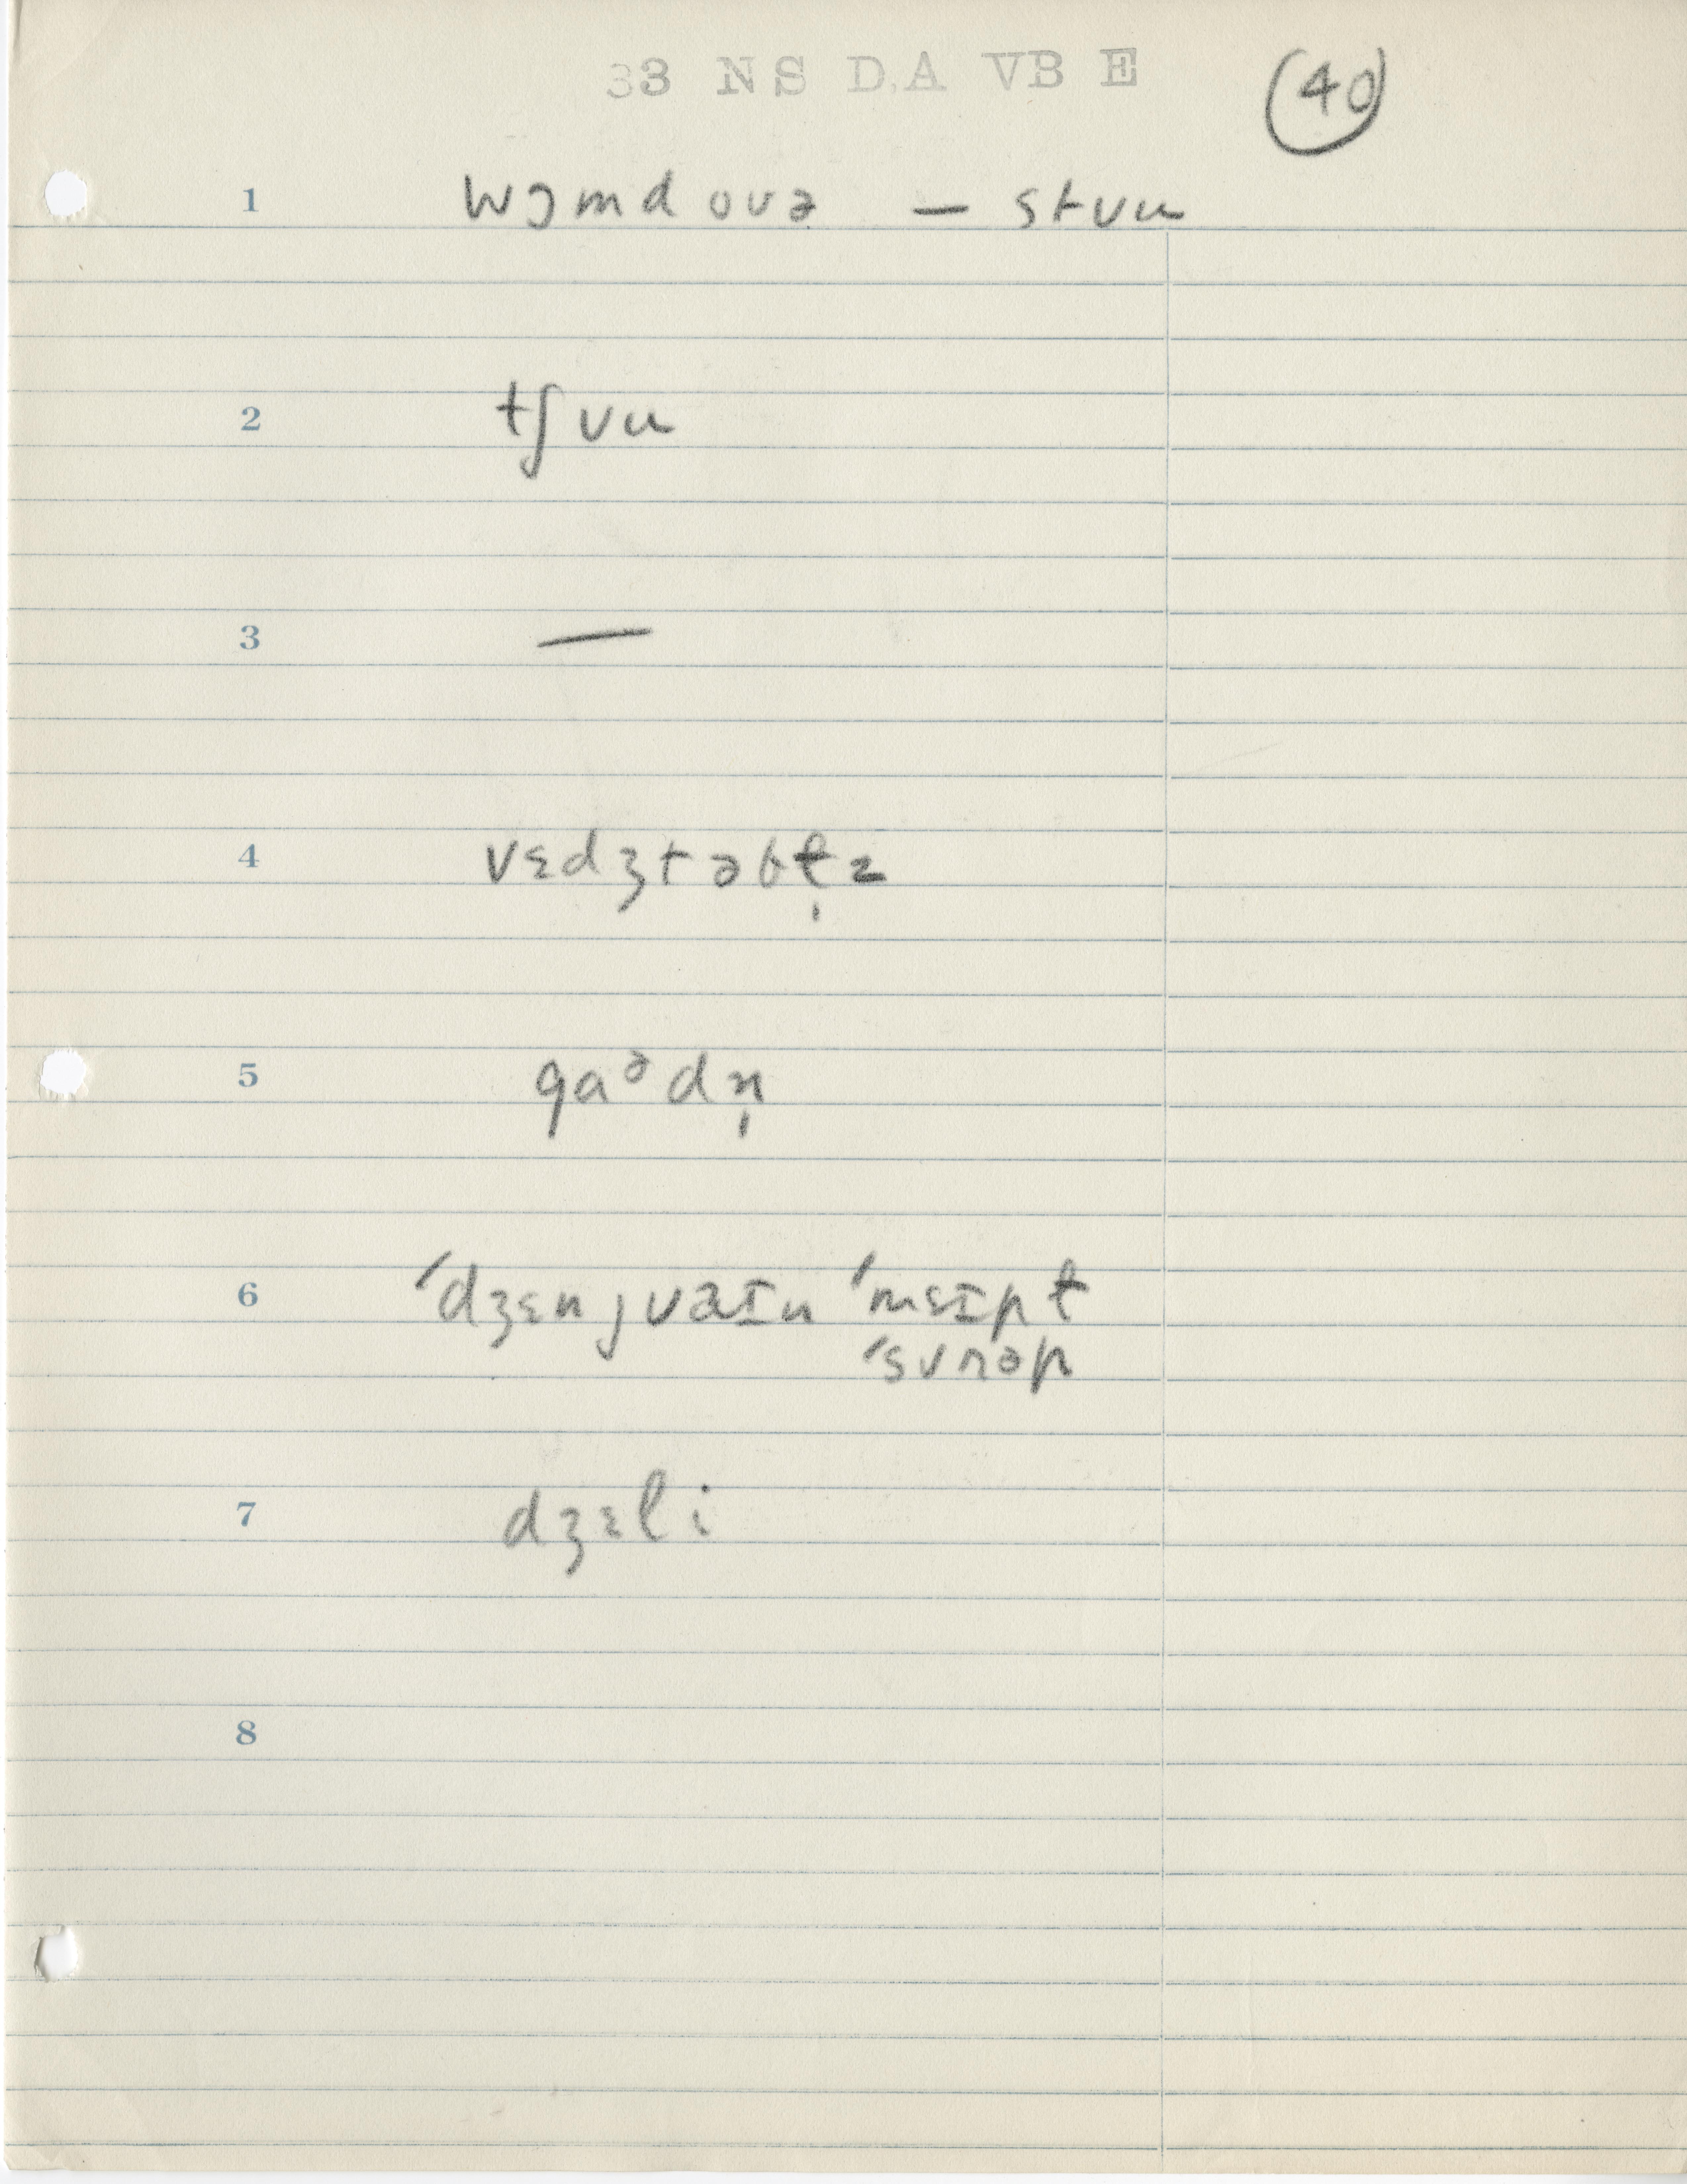 33 NS D.A VB E (40)
1 wɔmd ovə — stvu
2 tʃvu
3 —
4 vɛdʒtəbɫ̩z
5 gaᵊdn̩
6 ˈdʒɛnjvaɪn ˈmɛɪpɫ
ˈsɪrəp
7 dʒɛli
8